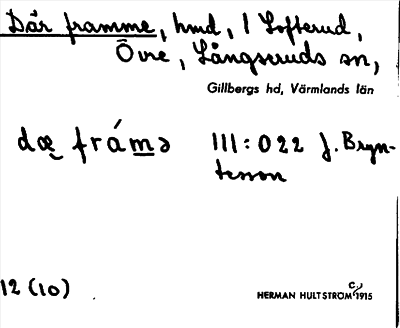 Där framme, hmd, i Lofterud,
Övre, Långseruds sn,
Gillbergs hd, Värmlands län
dæ̨ frám̲ə III:022 J. Bryn-
tesson
12 (10)
HERMAN HULTSTRÖM c/ 1915